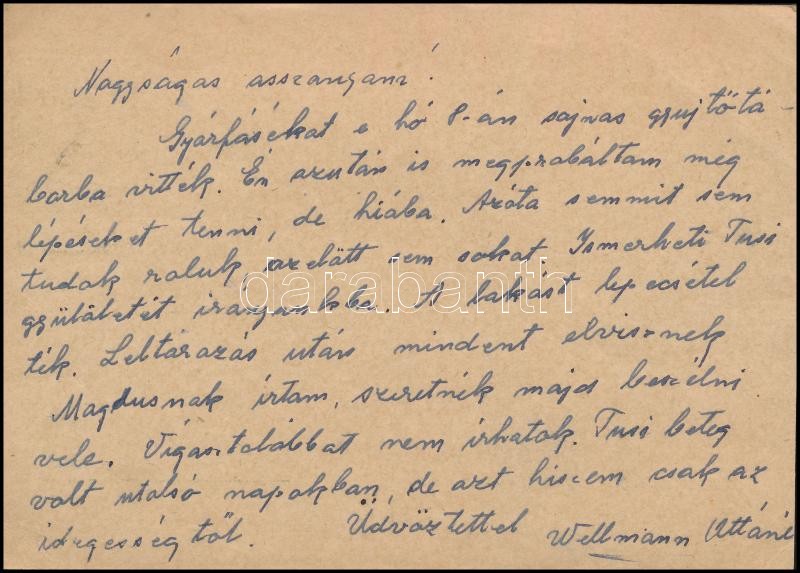 Nagyságas asszonyom!
Gyárfásékat e hó 8-án sajnos gyujtőtá-
borba vitték. Én azután is megprobáltam még
lépéseket tenni, de hiába. Azóta semmit sem
tudok roluk, azelött sem sokat Ismerheti Tusi
gyülöletét irányukba. A lakást lepecsétel
ték. Leltározás után mindent elvisznek
Magdusnak írtam, szeretnék majd beszélni
vele. Vigasztalóbbat nem irhatok. Tusi beteg
volt utolsó napokban, de azt hiszem csak az
idegességtől. Üdvöztettel
Wellmann Ottáné
darabanth